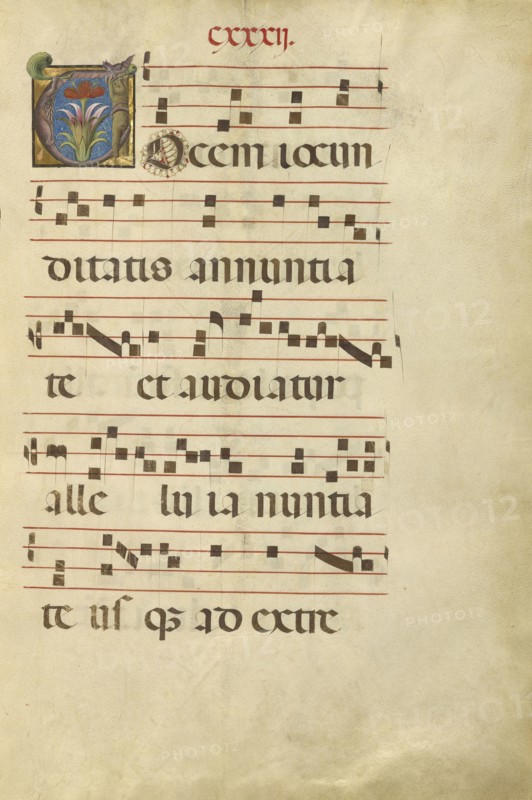 cxxxij.
Vocem iocun
ditatis annuntia
te et audiatur
alle lu ia nuntia
te usqꝫ ad extre
PHOTO12